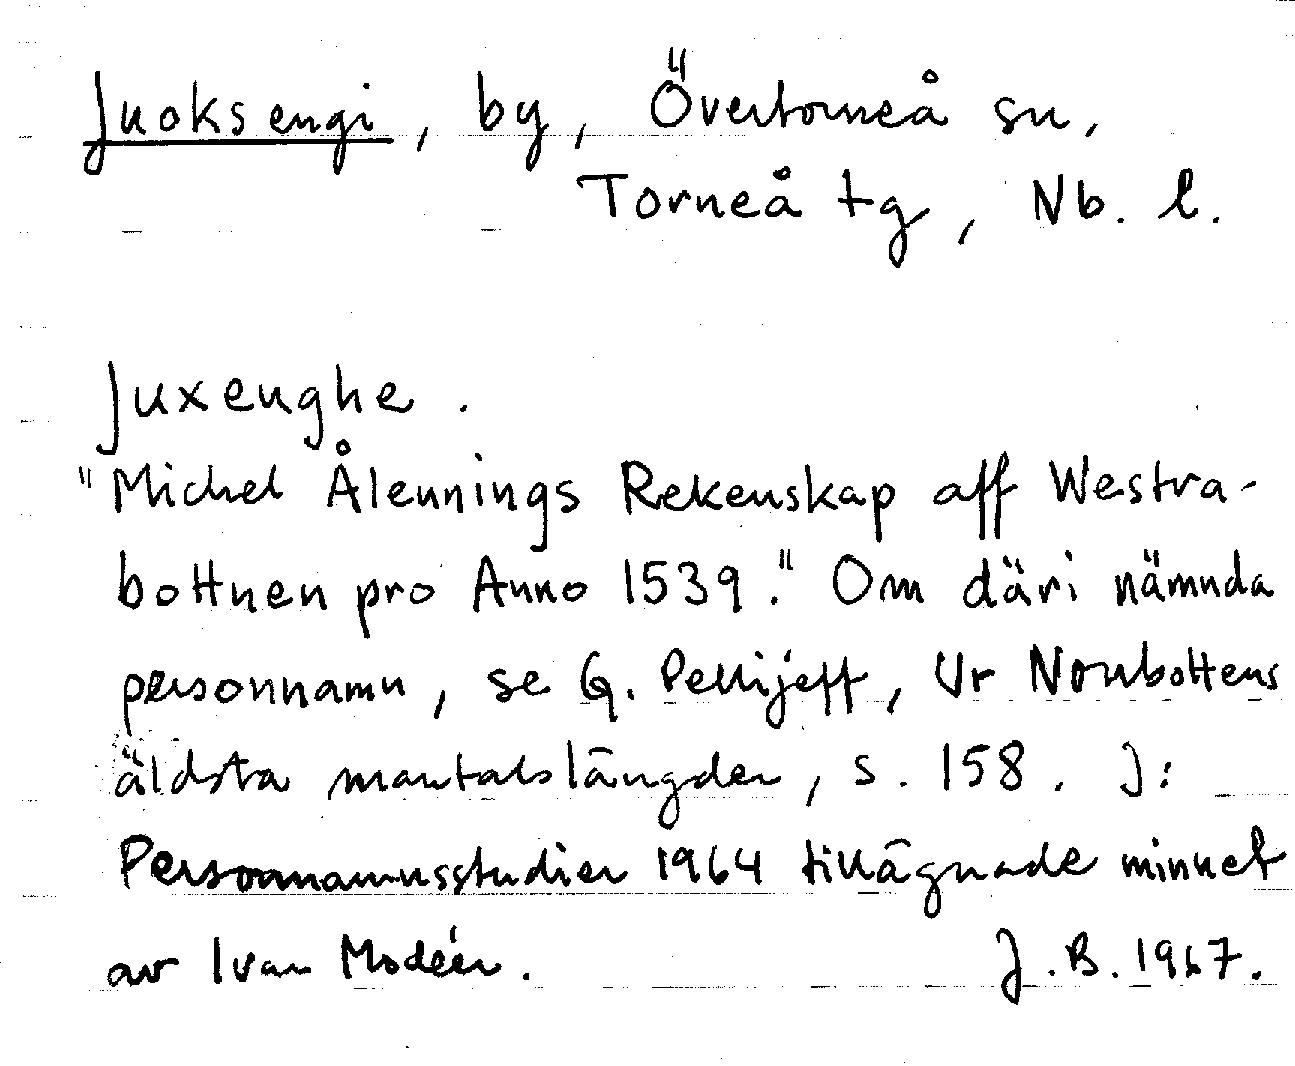 Juoksengi, by, Övertorneå sn,
Torneå tg, Nb. l.
Juxenghe.
"Michel Ålennings Rekenskap aff Westra-
bottnen pro Anno 1539." Om däri nämnda
personnamn, se G. Pellijeff, Ur Norrbottens
äldsta mantalslängder, s. 158. I:
Personnamnsstudier 1964 tillägnade minnet
av Ivar Modéer. J. B. 1967.